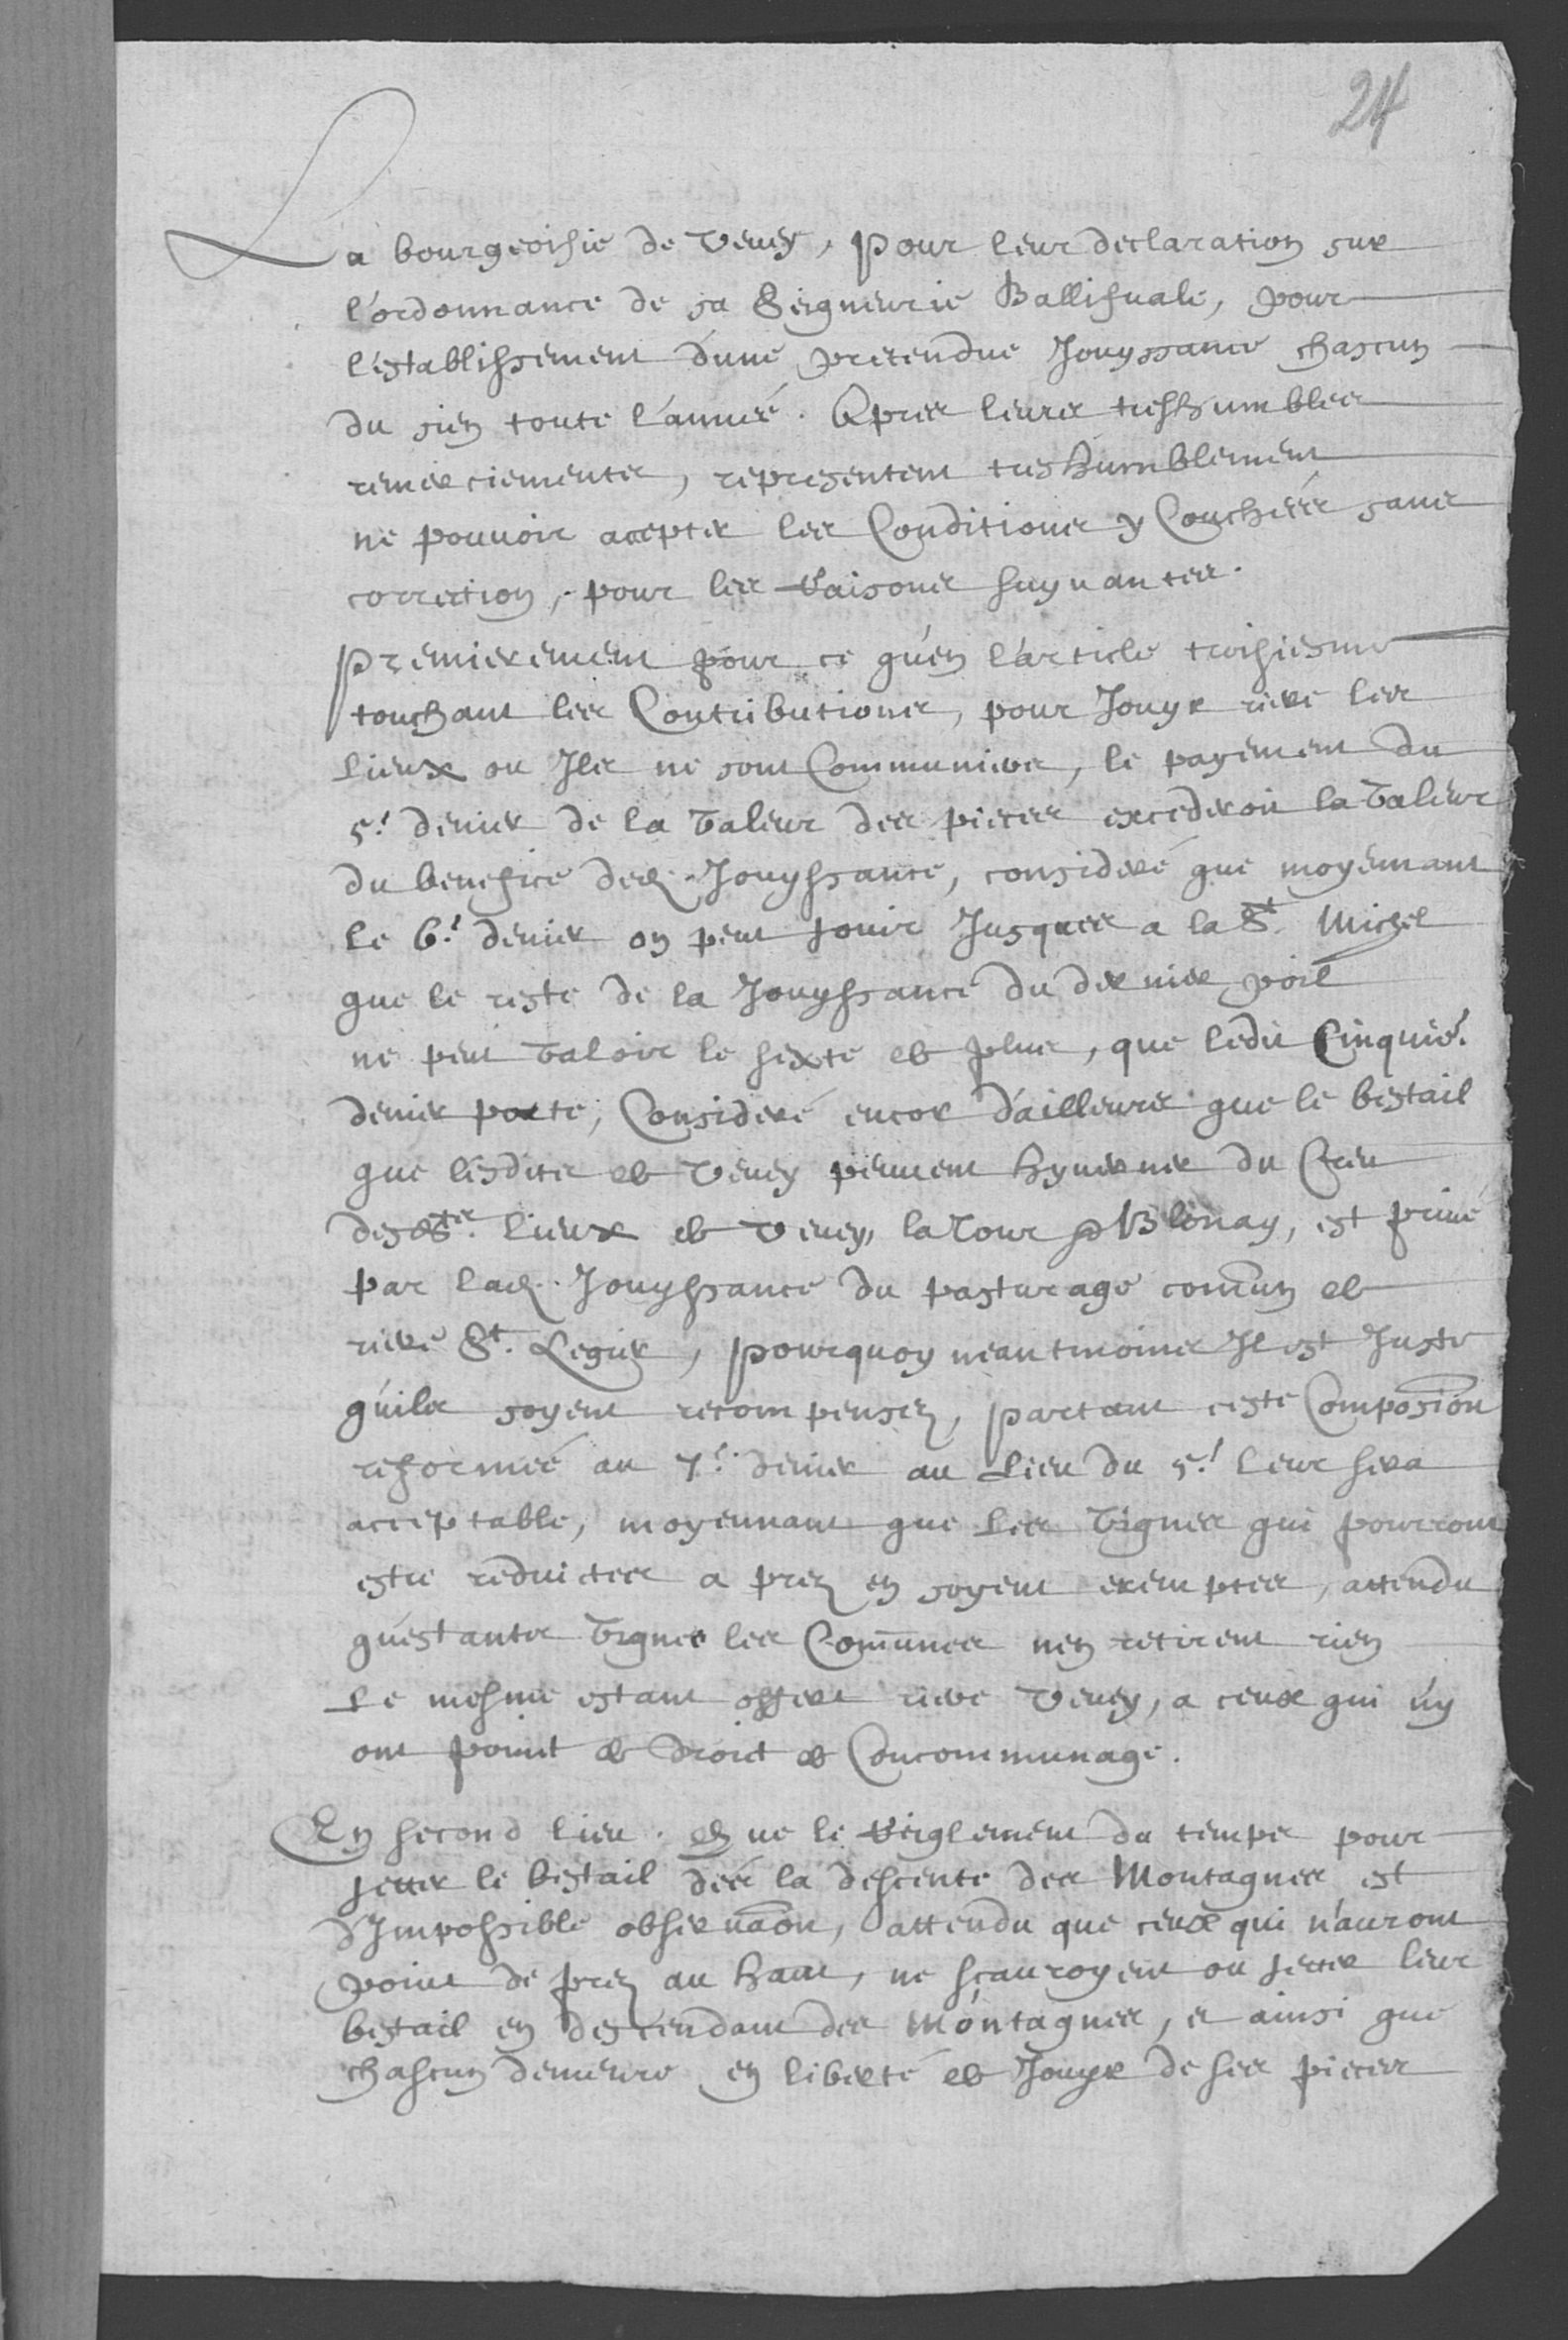 24
La bourgeoisie de Vevey, pour leur declaration sur
l'ordonnance de sa Seigneurie Ballifvale, pour
l'establissement d'une pretendue Jouyssance chascun
du sien toute l'année. Apres leurs treshumbles
remerciements, representent treshumblement
ne pouvoir accepter les Conditions y Couchées sans
correction, pour les raisons suyvantes.
Premierement pour ce qu'en l'article troisiesme
touchant les Contributions, pour Jouyr riere les
lieux ou Ils ne sont Communiers, le payement du
5.e denier de la valeur des pieces excederoit la valeur
du benefice de lad. Jouyssance, consideré que moyennant
le 6.e denier on peut jouir Jusques a la St. Michel
que le reste de la Jouyssance du dernier poil
ne peut valoir le sexte et plus, que ledit Cinquie.
denier porte, Consideré encor d'ailleurs que le bestail
que lesdits de Vevey peuvent hyverner du Creu
desdts. lieux de Vevey, la Tour & Blonay, est privé
par lad. Jouyssance du pasturage commun de
riere St. Legier, pourquoy neantmoins Il est Juste
qu'ils soyent recompensez, partant ceste Composion
reformée au 7.e denier au Lieu du 5.e leur sera
acceptable, moyennant que les vignes qui pourront
estre reduictes a prez en soyent exemptes, attendu
qu'estants vignes les Comunes n'en retirent rien
Le mesme estant offert riere Vevey, a ceux qui n'y
ont point de droict de Concommunage.
En second lieu. que le reiglement du temps pour
jetter le bestail dés la descente des Montagnes, est
d'Impossible observaon, attendu que ceux qui n'auront
point de prez au haut, ne sçauroyent ou jetter leur
bestail en descendant des Montagnes, et ainsi que
chascun demeure en liberté de Jouyr de ses pieces